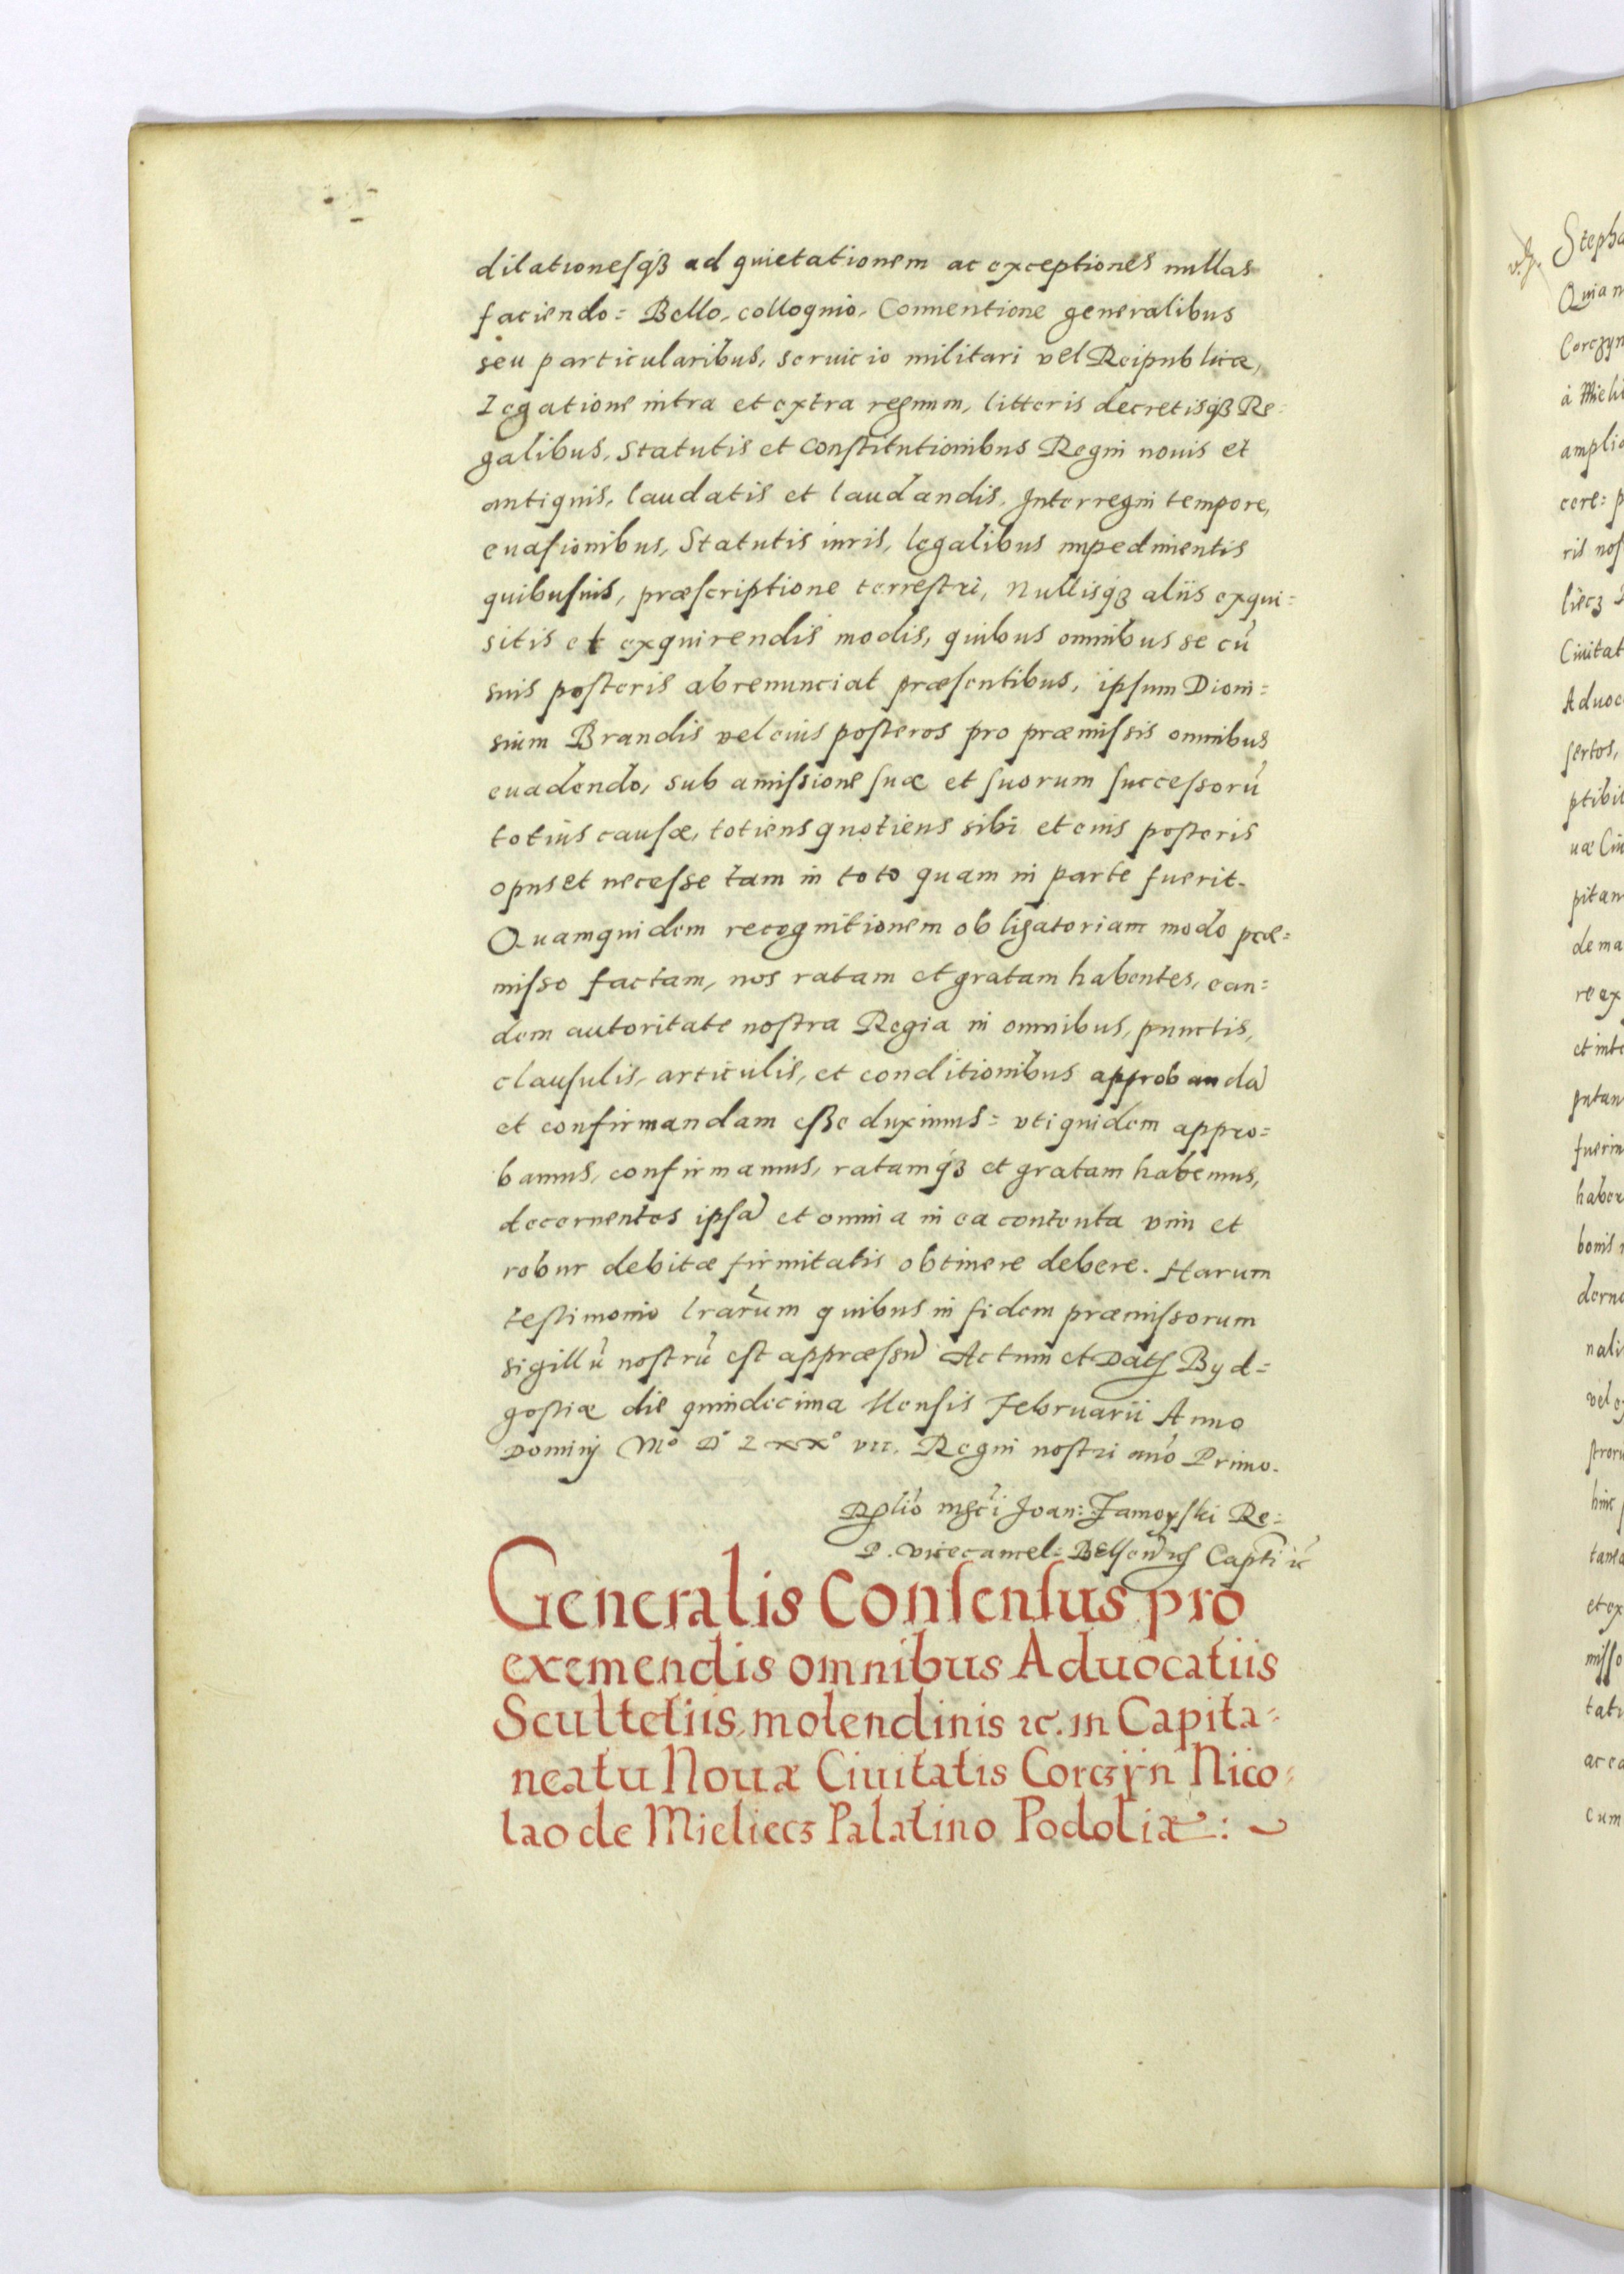 dilationesqꝫ ad quietationem ac exceptiones nullas
faciendo: Bello, colloquio, Conuentione generalibus
seu particularibus, seruicio militari vel Reipublicæ,
Legatione intra et extra regnum, litteris decretisqꝫ Re=
galibus, Statutis et constitutionibus Regni nouis et
antiquis, laudatis et laudandis, Interregni tempore,
euasionibus, Statutis iuris, legalibus impedimentis
quibusuis, præscriptione terrestri, nullisqꝫ aliis exqui=
sitis et exquirendis modis, quibus omnibus se cū
suis posteris abrenunciat præsentibus, ipsum Dioni=
sium Brandis vel eius posteros pro præmissis omnibus
euadendo, sub amissione suæ et suorum successorū
totius causæ, totiens quotiens sibi et eius posteris
opus et necesse tam in toto quam in parte fuerit.
Quamquidem recognitionem obligatoriam modo præ=
misso factam, nos ratam et gratam habentes, ean=
dem autoritate nostra Regia in omnibus, punctis,
clausulis, articulis, et conditionibus approbandā
et confirmandam esse duximus: vti quidem appro=
bamus, confirmamus, ratamqꝫ et gratam habemus,
decernentes ipsā et omnia in ea contenta vim et
robur debitæ firmitatis obtinere debere. Harum
testimonio lrarum quibus in fidem præmissorum
sigillū nostrū est appræssū Actum et Dat Byd=
gostiæ die quindecima Mensis Februarii Anno
Dominij Mº Dº LXXº VII. Regni nostri anō Primo.
Relio mgci Joan: Zamoyski Re=
P. vicecancel: Belsen Capti
Generalis Consensus pro
exemendis omnibus Aduocatiis
Scultetiis, molendinis ꝛc. in Capita=
neatu Nouæ Ciuitatis Corczÿn Nico=
lao de Mieliecz Palatino Podoliæ:
Stepha
Quia n
Corczyn
à Mieli
amplia
cere: p
ris nos
liecz
Ciuitat
Aduoc
sertos,
ptibil
uæ Ciu
pitan
de ma
re ex
et inte
putan
fuerin
haber
bonis
derna
nali
vel
hinc
et ex
misso
tatu
ac ea
cum